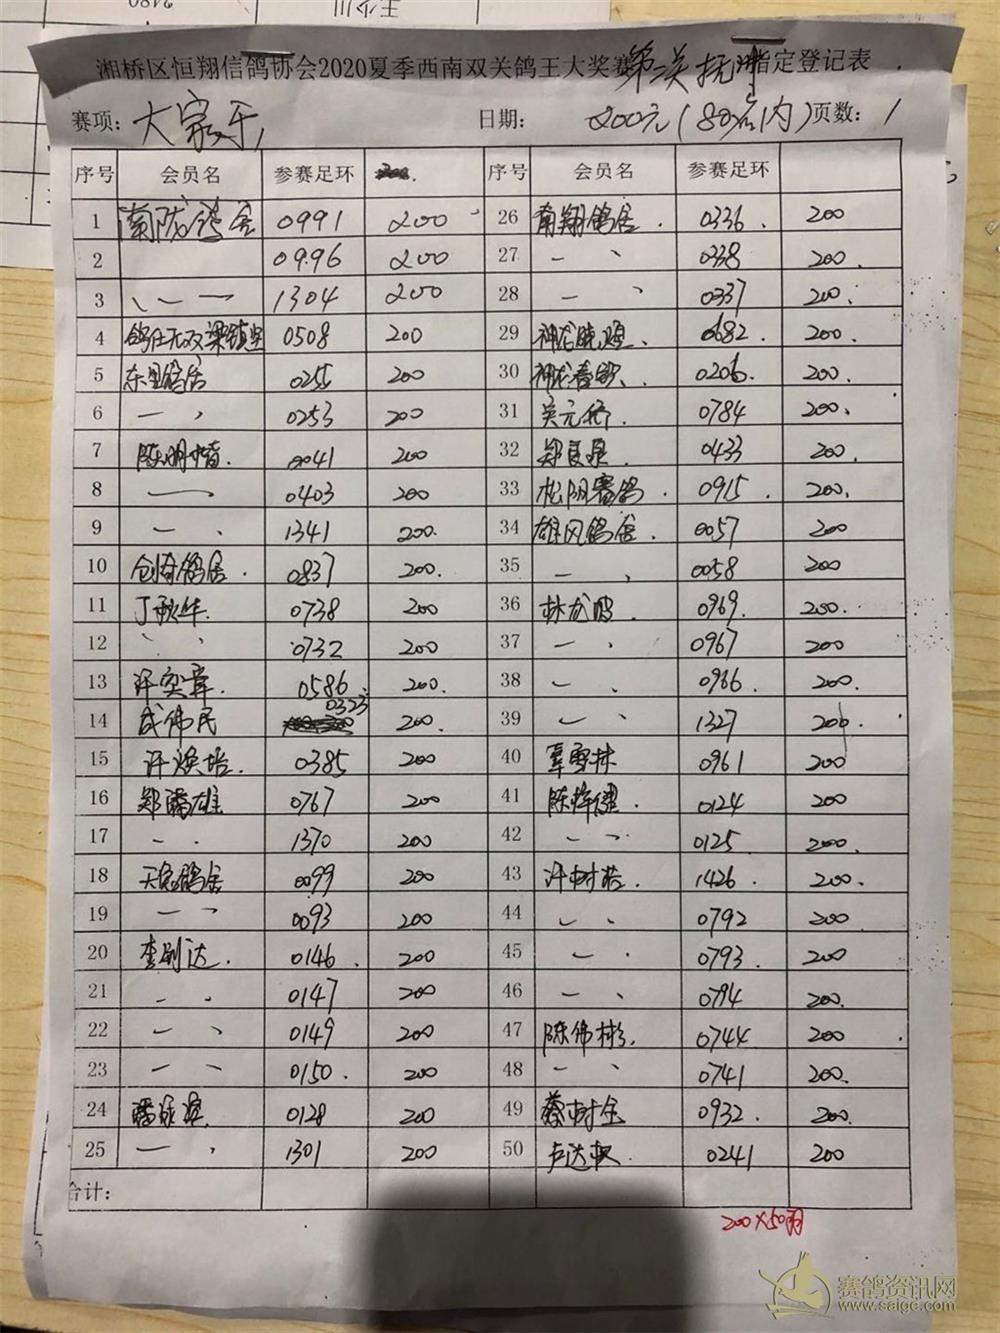 湘桥区恒翔信鸽协会2020夏季西南双关鸽王大奖赛第二关抚州指定登记表
赛项：大家乐 日期： 200元（80名内）页数：1
序号 会员名 参赛足环 序号 会员名 参赛足环
1 南陇鸽舍 0991 200 26 南翔鸽居 0336 200
2 0996 200 27 一 、 0338 200
3 、 一 一 1304 200 28 一 、 0337 200
4 0508 200 29 神龙 0682 200
5 东里鸽居 0255 200 30 神龙春 0206 200
6 一 、 0253 200 31 吴元桥 0784 200
7 陈明 0041 200 32 郑 0433 200
8 一 0403 200 33 松阴赛鸽 0915 200
9 一 、 1341 200 34 雄风鸽居 0057 200
10 创奇鸽居 0837 200 35 一 、 0058 200
11 丁秋华 0738 200 36 林龙波 0969 200
12 、 、 0732 200 37 一 、 0967 200
13 许奕章 0586 200 38 一 、 0966 200
14 成伟民 0323 200 39 一 、 1327 200
15 许焕 0385 200 40 辜雪林 0961 200
16 郑 雄 0767 200 41 陈烽 0124 200
17 一 、 1370 200 42 一 、 0125 200
18 天 鸽居 0099 200 43 许树 1426 200
19 一 一 0093 200 44 一 、 0792 200
20 李 达 0146 200 45 一 、 0793 200
21 一 、 0147 200 46 一 、 0794 200
22 一 、 0149 200 47 陈伟彬 0744 200
23 一 、 0150 200 48 一 、 0741 200
24 潘 0128 200 49 蔡树 0932 200
25 一 、 1301 200 50 卢达 0241 200
合计：
200×50羽
赛鸽资讯网
www.saigc.com